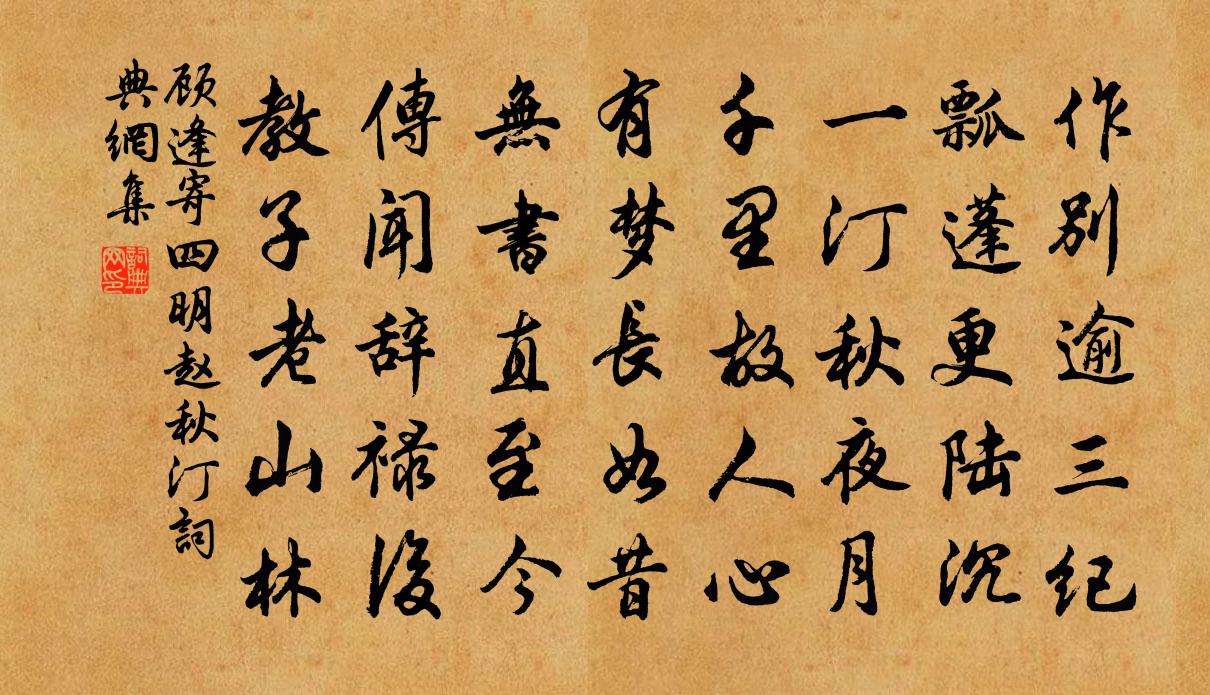 作别逾三纪
瓢蓬更陆沉
一汀秋夜月
千里故人心
有梦長如昔
無書直至今
傳闻辞禄後
教子老山林
顾逢寄四明赵秋汀詞
典網集
詞典網印